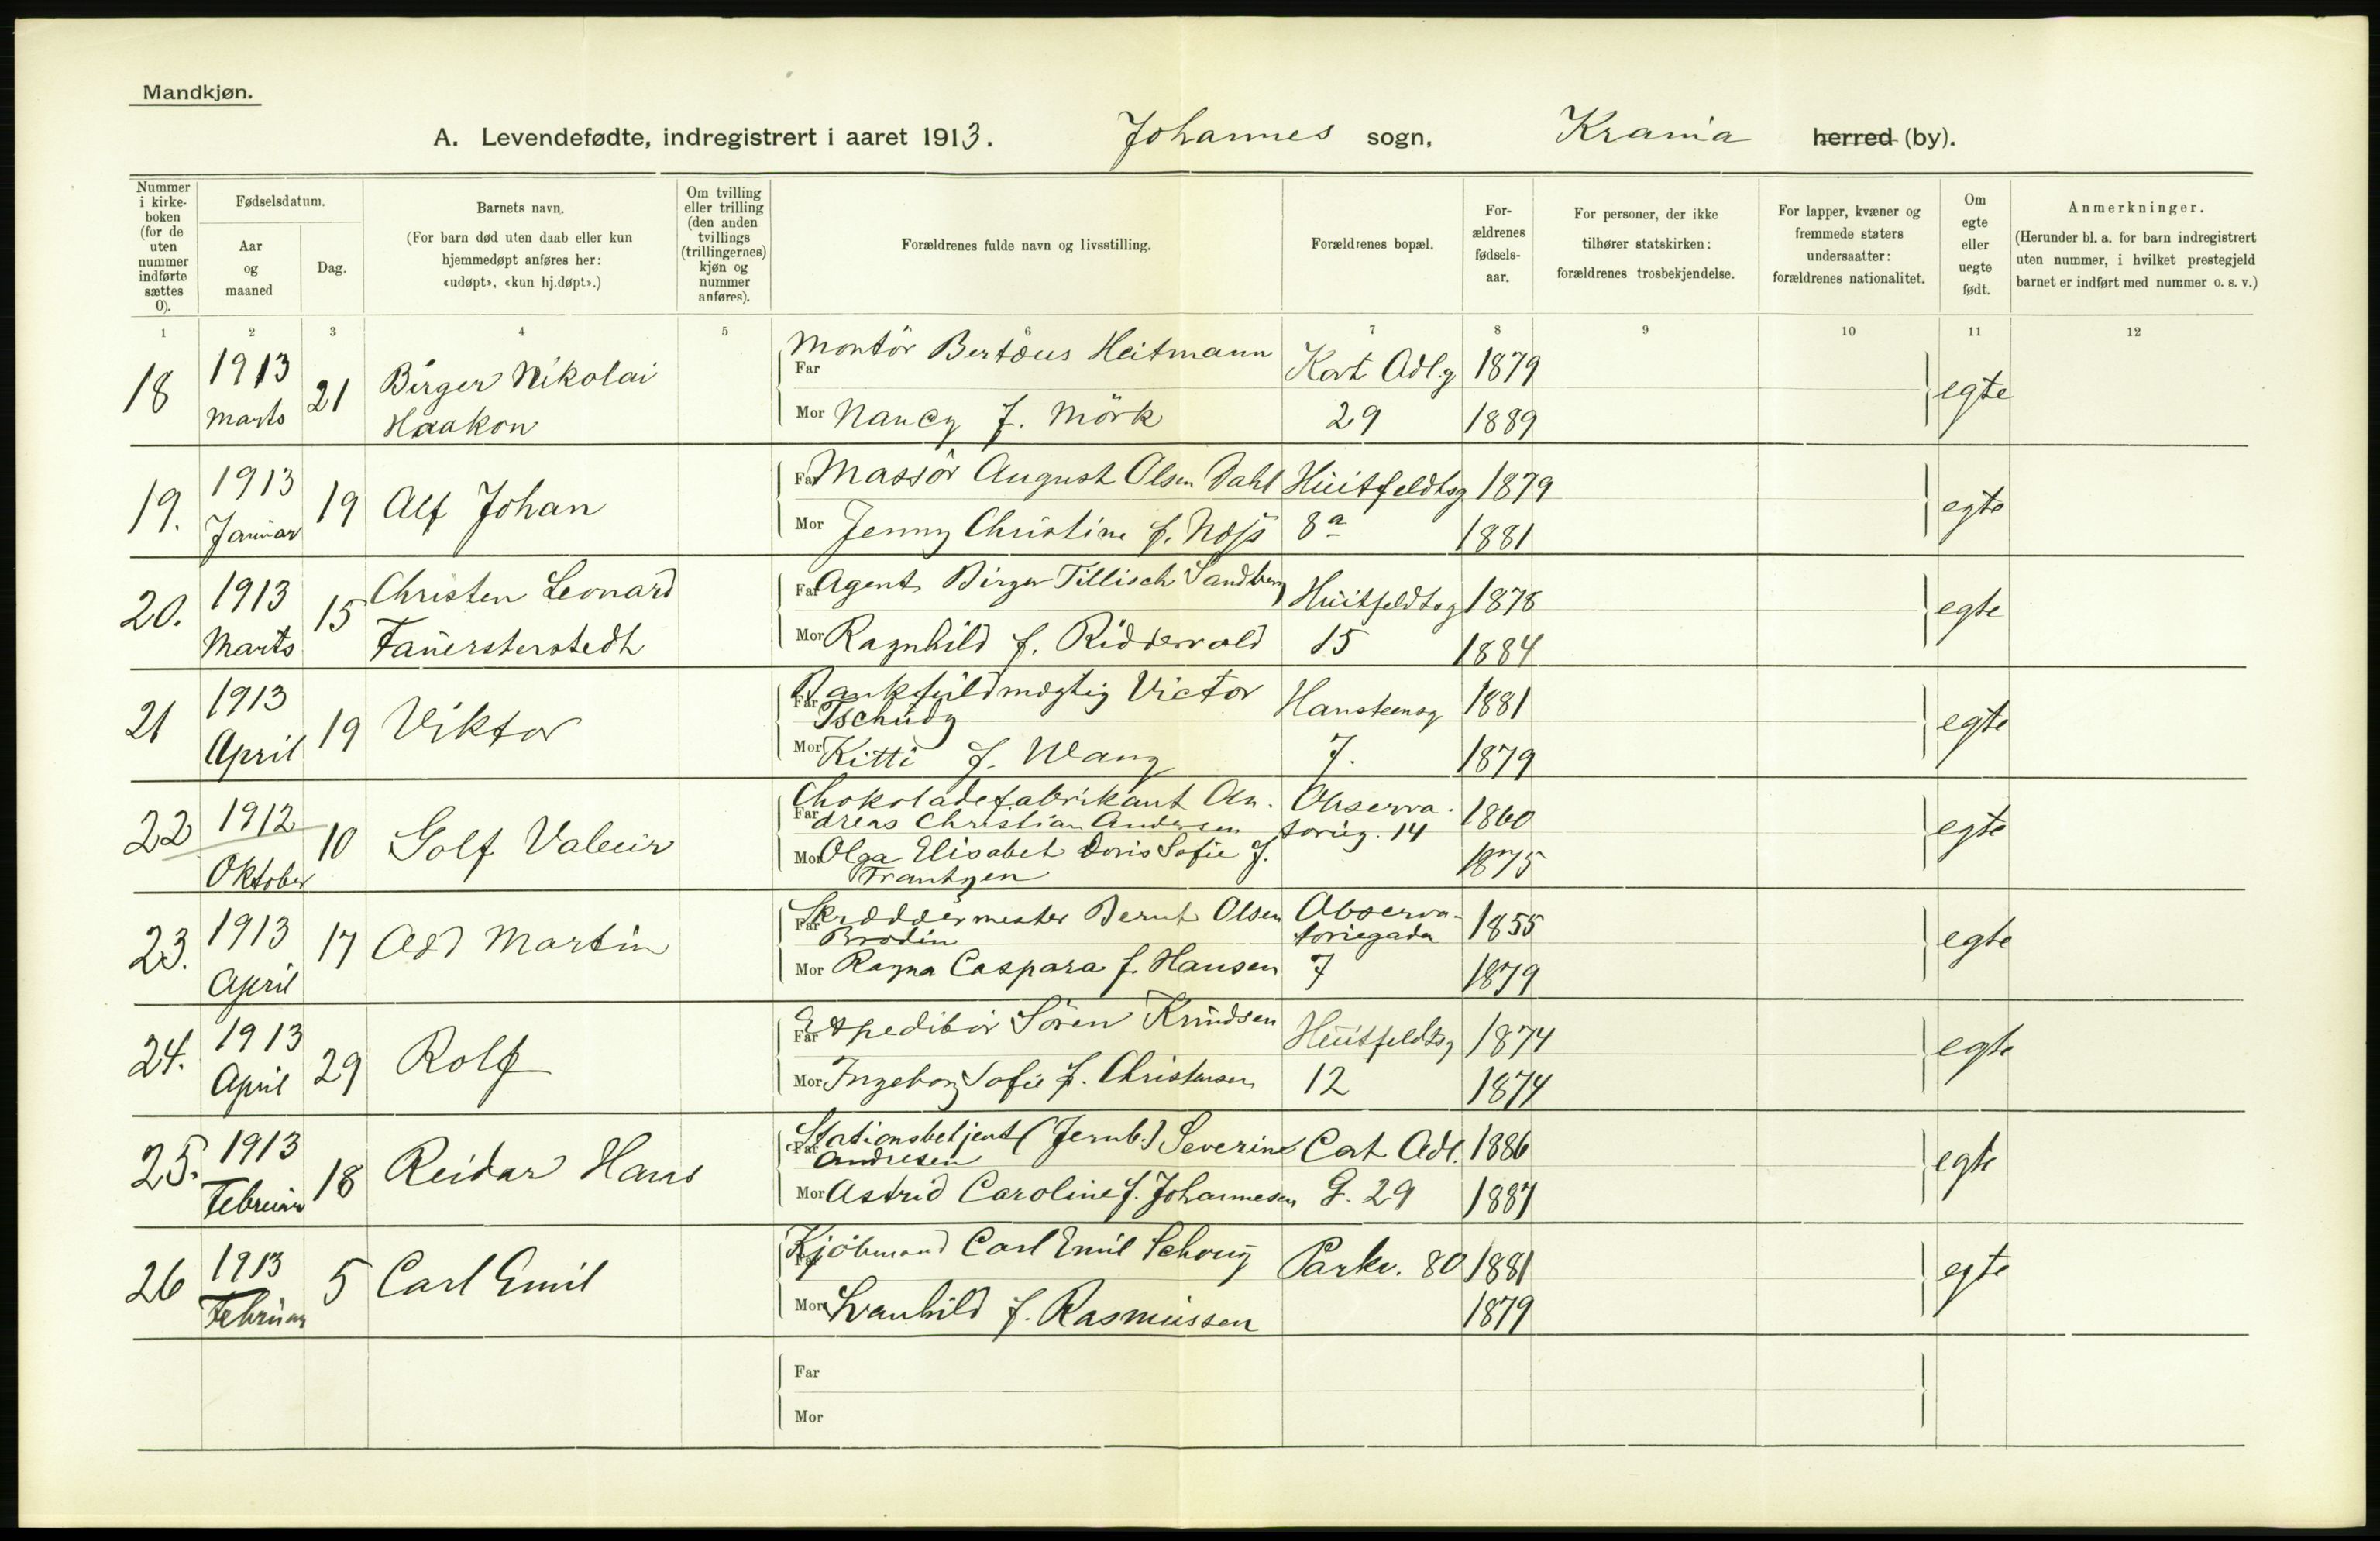 Mandkjøn.
A. Levendefødte, indregistrert i aaret 1913. Johannes sogn, Krania herred (by).
Nummer i kirke-boken (for de uten nummer indførte sættes 0).
Fødselsdatum.
Aar og maaned
Dag.
Barnets navn.
(For barn død uten daab eller kun hjemmedøpt anføres her: «udøpt», «kun hj.døpt».)
Om tvilling eller trilling (den anden tvillings (trillingernes) kjøn og nummer anføres).
Forældrenes fulde navn og livsstilling.
Forældrenes bopæl.
For-ældrenes fødsels-aar.
For personer, der ikke tilhører statskirken: forældrenes trosbekjendelse.
For lapper, kvæner og fremmede staters undersaatter: forældrenes nationalitet.
Om egte eller uegte født.
Anmerkninger.
(Herunder bl. a. for barn indregistrert uten nummer, i hvilket prestegjeld barnet er indført med nummer o. s. v.)
1 2 3 4 5 6 7 8 9 10 11 12
18 1913 Marts 21 Birger Nikolai Haakon
Far Montör Bertæus Heitmann Kat Adl.g 1879 egte
Mor Nancy f. Mörk 29 1889
19. 1913 Januar 19 Alf Johan
Far Massör August Olsen Dahl Huitfeldtsg 1879 egte
Mor Jenny Christine f. Næss 8a 1881
20. 1913 Marts 15 Christen Leonard Fauersterstedt
Far Agent Birger Tillisch Sandberg Huitfeldtsg 1878 egte
Mor Ragnhild f. Riddervold 15 1884
21 1913 April 19 Viktor
Far Bankfuldmægtig Victor Tschudy Hansteensg 1881 egte
Mor Kitti f. Wang 7. 1879
22 1912 Oktober 10 Golf Valeur
Far Chokoladefabrikant Andreas Christian Andersen Observatorieg. 14 1860 egte
Mor Olga Elisabet Doris Sofie f. Frantzen 1875
23. 1913 April 17 Odd Martin
Far Skræddermester Bernt Olsen Brodin Observatoriegada 1855 egte
Mor Ragna Caspara f. Hansen 7 1879
24. 1913 April 29 Rolf
Far Expeditör Sören Knudsen Huitfeldtsg 1874 egte
Mor Ingeborg Sofie f. Christensen 12 1874
25. 1913 Februar 18 Reidar Hans
Far Stationsbetjent (Jernb.) Severin Andresen Cat Adl. 1886 egte
Mor Astrid Caroline f. Johannesen G. 29 1887
26 1913 Februar 5 Carl Emil
Far Kjöbmand Carl Emil Schoug Parkv. 80 1881 egte
Mor Svanhild f. Rasmussen 1879
Far
Mor